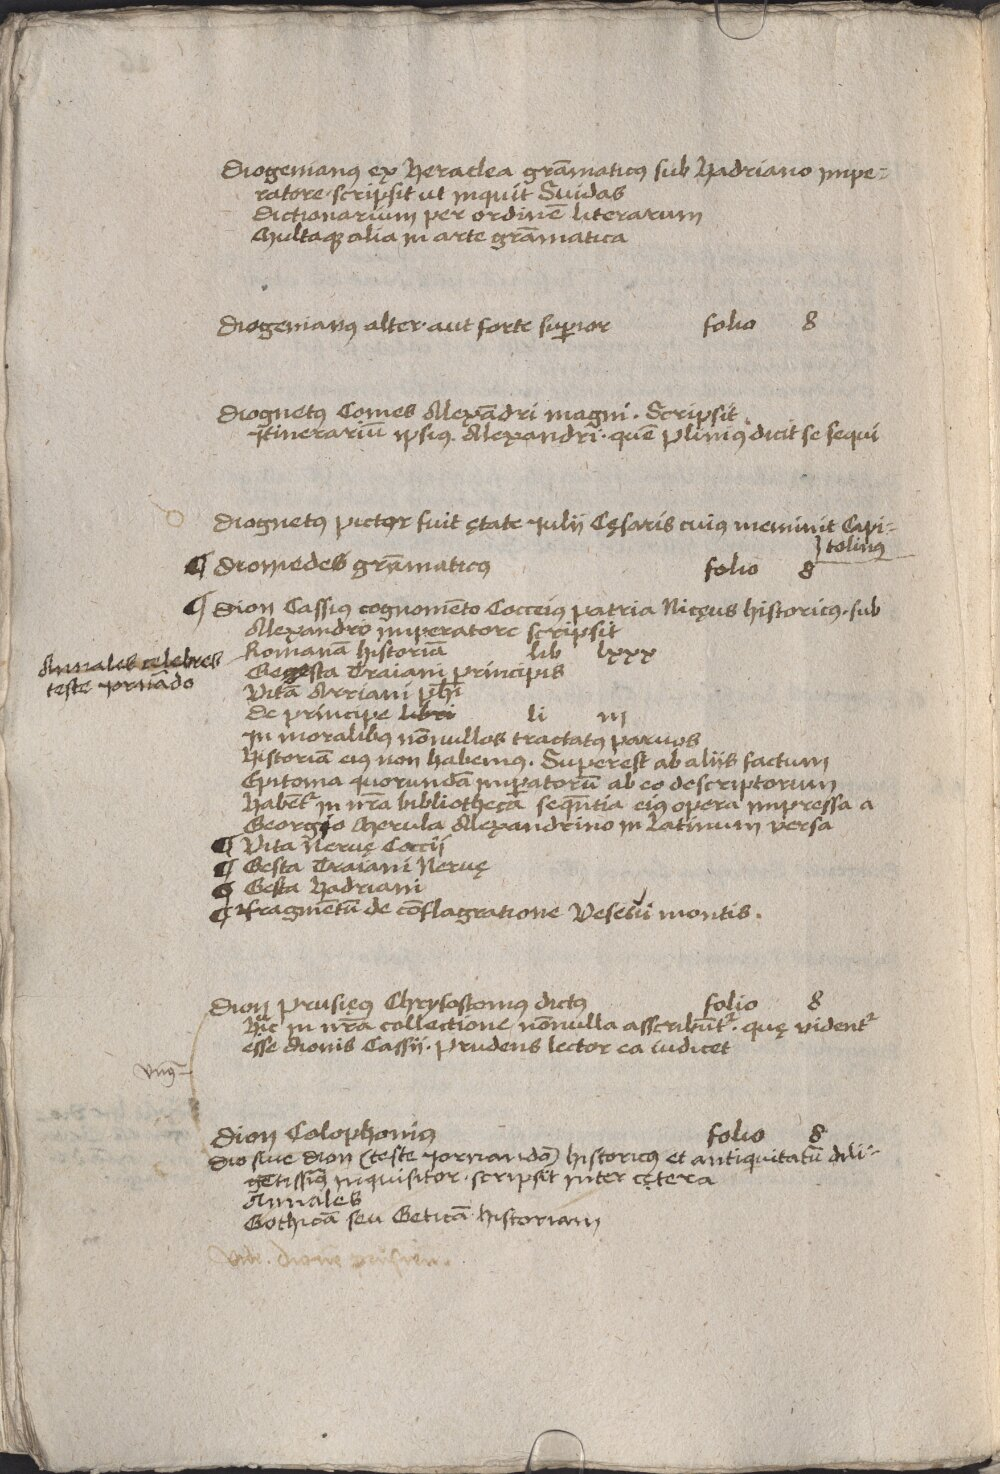 Diogenianꝯ ex Heraclea grāmaticꝯ sub Hadriano impe=
ratore scripsit ut inquit Suidas
Dictionarium per ordinē literarum
Multaqꝫ alia in arte grāmatica
Diogenianꝯ alter aut forte suꝑior folio 8
Diognetꝯ Comes Alexādri magni. Scripsit.
Itinerariū ipsiꝯ Alexandri. quē Pliniꝯ dicit se sequi
Diognetꝯ pictor fuit ętate Julij Cęsaris cuiꝯ meminit Capi=
tolinꝯ
¶ Diomedes grāmaticꝯ folio 8
¶ Dion Cassiꝯ cognomēto Cocceiꝯ patria Nicęus historicꝯ. sub
Alexandro imperatore scripsit
Annales celebres
teste Jornādo
Romanā historiā lib lxxx
Gesta Traiani principis
Vitā Arriani phī
De principe libri li iij
In moralibꝯ nōnullos tractatꝯ paruos
Historiā eiꝯ non habemꝯ. Superest ab aliis factum
Epitoma quorundā impatorū ab eo descriptorum
Habentꝰ in nr̄a bibliotheca seqn̄tia eiꝯ opera impressa a
Georgio Merula Alexandrino in latinum versa
¶ Vita Neruę Coccij
¶ Gesta Traiani Neruę
¶ Gesta Hadriani
¶ Fragmētū de cōflagratione Veseuij montis.
Dion Prusięꝯ Chrysostomus dictꝯ folio 8
Huic in nr̄a collectione nōnulla asscribūtꝰ. quę videntꝰ
esse Dionis Cassij. Prudens lector ea iudicet
vnꝯ
Dion Colophoniꝯ folio 8
Dio siue Dion (teste Jornandō) historicꝯ et antiquitatū dili=
gētissimꝯ inquisitor. scripsit inter cętera
Annales
Gothicā seu Geticā historiam
vide. Dionē